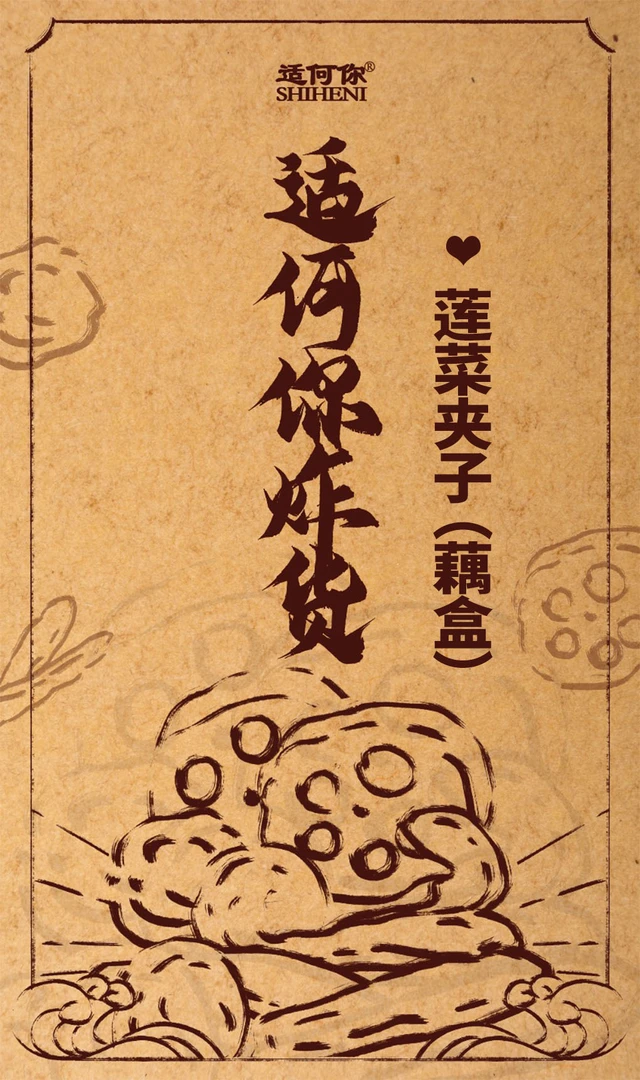 适何你®
SHIHENI
适何你炸货
❤莲菜夹子（藕盒）